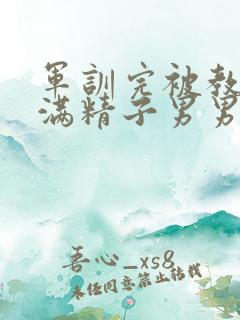 军訓完被教
满精子男男
吾心_xs8
未经同意禁止转载